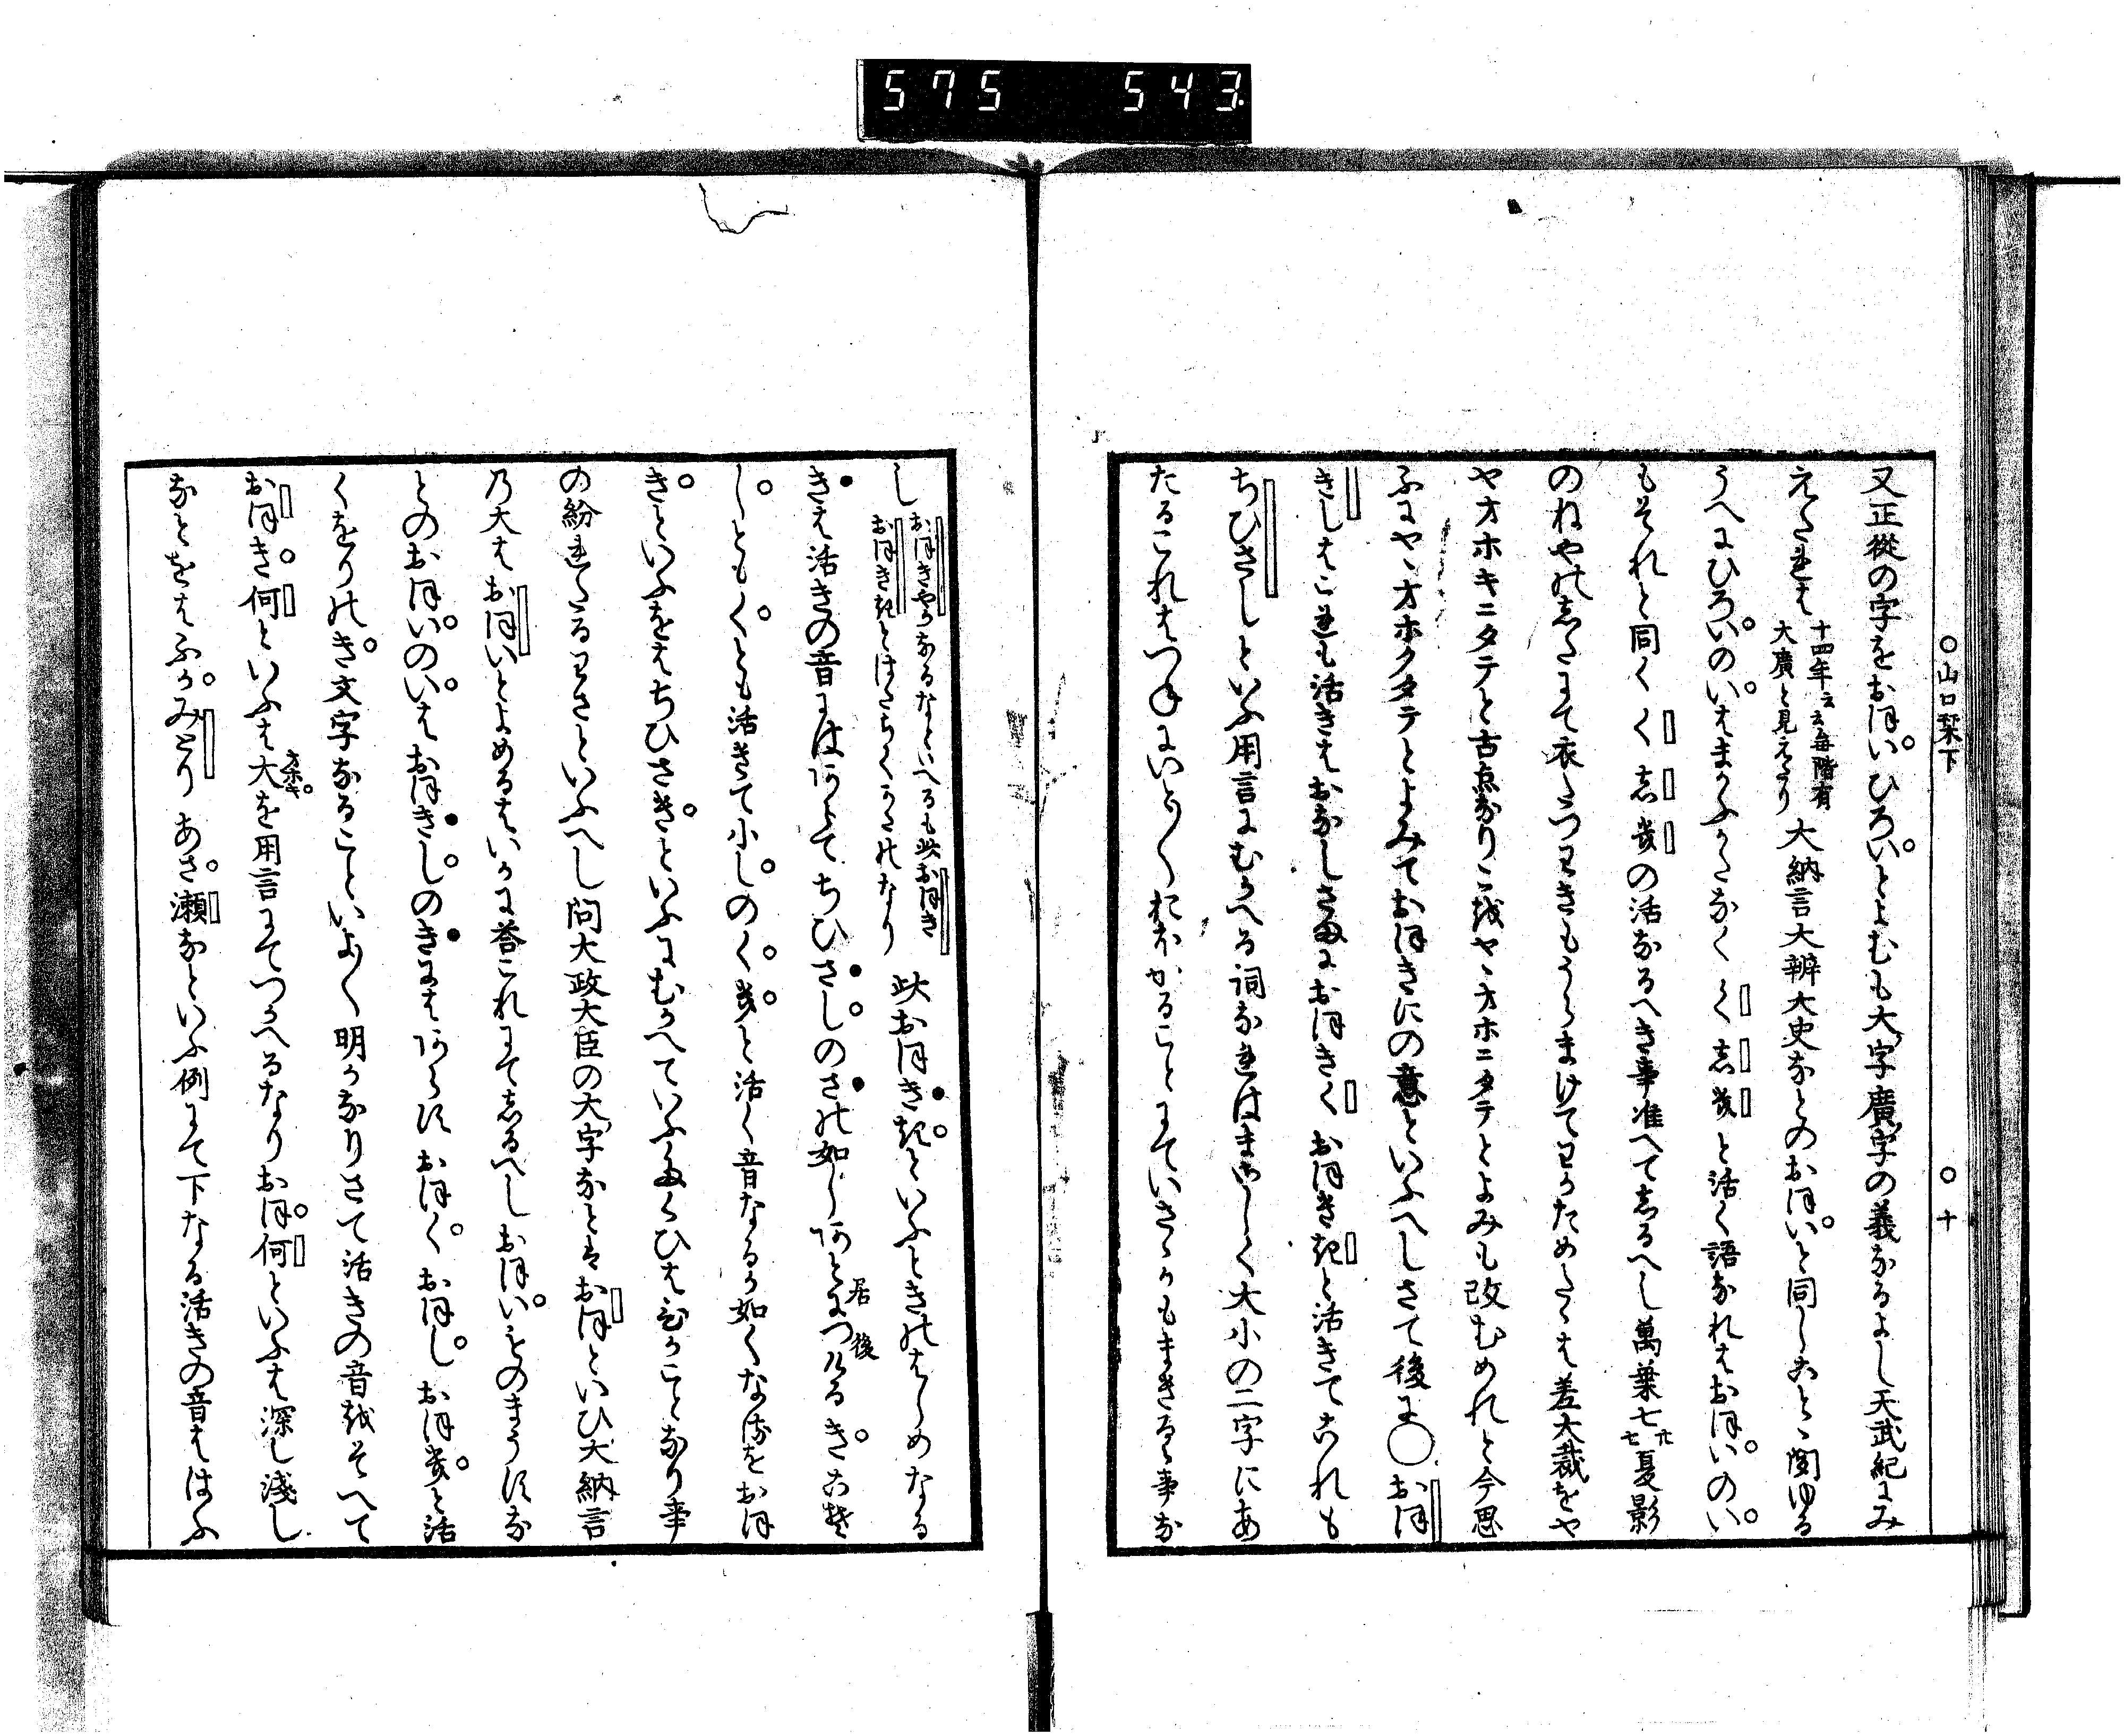 575 543
○山口栞下 ○十
又正從の字をおほいひろいとよむも大字廣字の義なるよし天武紀にみ
えたれは 十四年云云毎階有大廣と見えたり 大納言大辨大史なとのおほいと同しこと聞ゆる
うへにひろいのいはまかふかたなく く志幾と活く語なれはおほいのい
もそれと同く く志幾の活なるへき事准へて志るへし萬葉七廿七夏影
のねやの志たにて衣たつわきもうらまけてわかためたゝは差大裁をや
ヤオホキニタテと古点なりこ越ヤヽオホニタテとよみも改むめれと今思
ふにヤヽオホクタテとよみておほきにの意といふへしさて後に○おほ
きしはこれも活きはおなしさまにおほきく おほき起と活きてこれも
ちひさしといふ用言にむかへる詞なれはまさしく大小の二字にあ
たるこれはつねにいと〱おほかることにていさゝかもまきるゝ事な
し おほきやかなるなといへるも此おほきおほき起とはたらくかたのなり 此おほき起といふときのはしめなる
きは活きの音にはあらてちひさしのさの如しあとにつける 居後 きこそ
しともくとも活きて小しのく幾と活く音なるか如くなほをおほ
きといふをはちひさきといふにむかへていふたくひはひかことなり事
の紛れたるわさといふへし問大政大臣の大字なとはおほといひ大納言
乃大はおほいとよめるはいかに答これにて志るへしおほいとのまうすな
とのおほいのいはおほきしのきにはあらすおほくおほしおほ幾と活
くをりのき文字なることいよ〱明かなりさて活きの音越そへて
おほき何といふは大 オホキ を用言にてつかへるなりおほ何といふは深し淺し
なとをはふかみとりあさ瀬なといふ例にて下なる活きの音をはふ